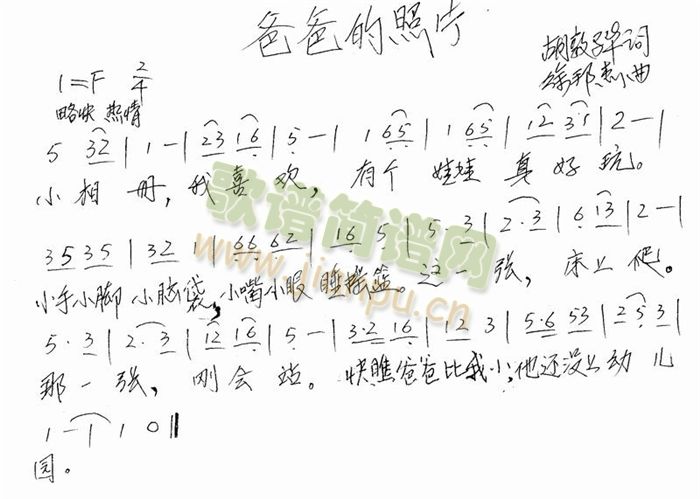 爸爸的照片
胡敦骅词
1=F 2/4
徐邦杰曲
略快 热情
5 32 | 1 — | 23 16 | 5 — | 1 65 | 1 65 | 12 31 | 2 — |
小相 册，我喜 欢， 有个 娃娃 真 好 玩。
35 35 | 32 1 | 66 62 | 16 5 | 5 3 | 2·3 | 6 13 | 2 — |
小手小脚 小脑袋，小嘴小眼 睡摇篮。这一 张， 床上 爬。
5·3 | 2·3 | 12 16 | 5 — | 3·2 16 | 12 3 | 5·6 53 | 25 3 |
那一 张， 刚会 站。 快瞧爸爸比我小，他还没上幼儿
1 — | 1 0 ‖
园。
歌谱简谱网
www.jianpu.cn